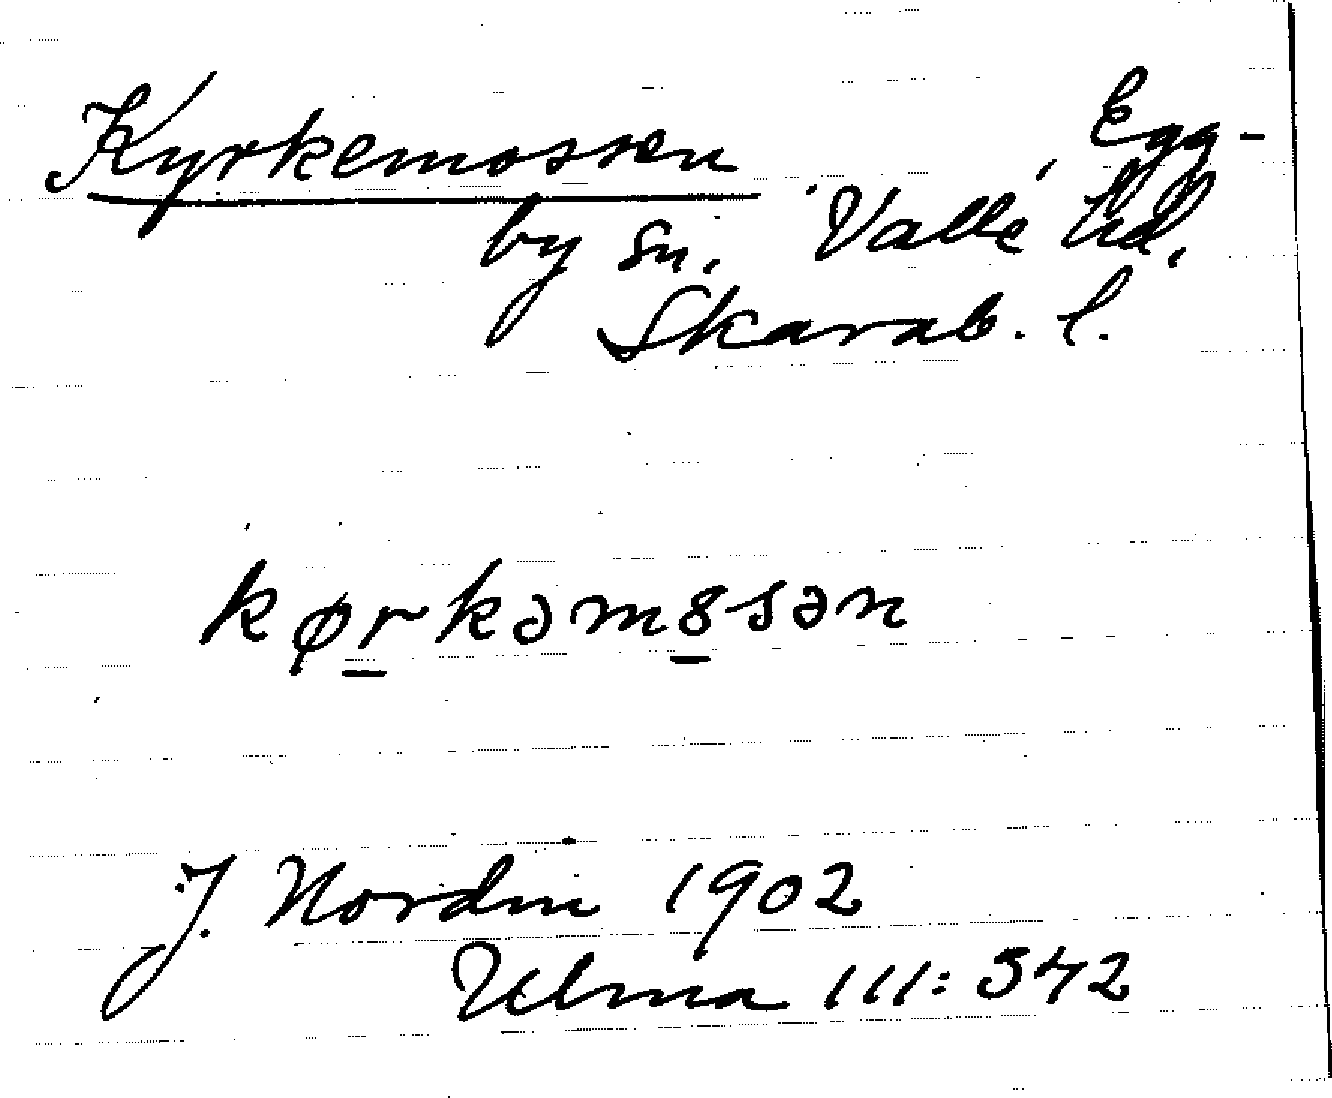 Kyrkemossen
by sn. Valle hd,
Egg-
Skarab. l.
kørkəm8sən
J. Nordin 1902
Ulma 111: 342